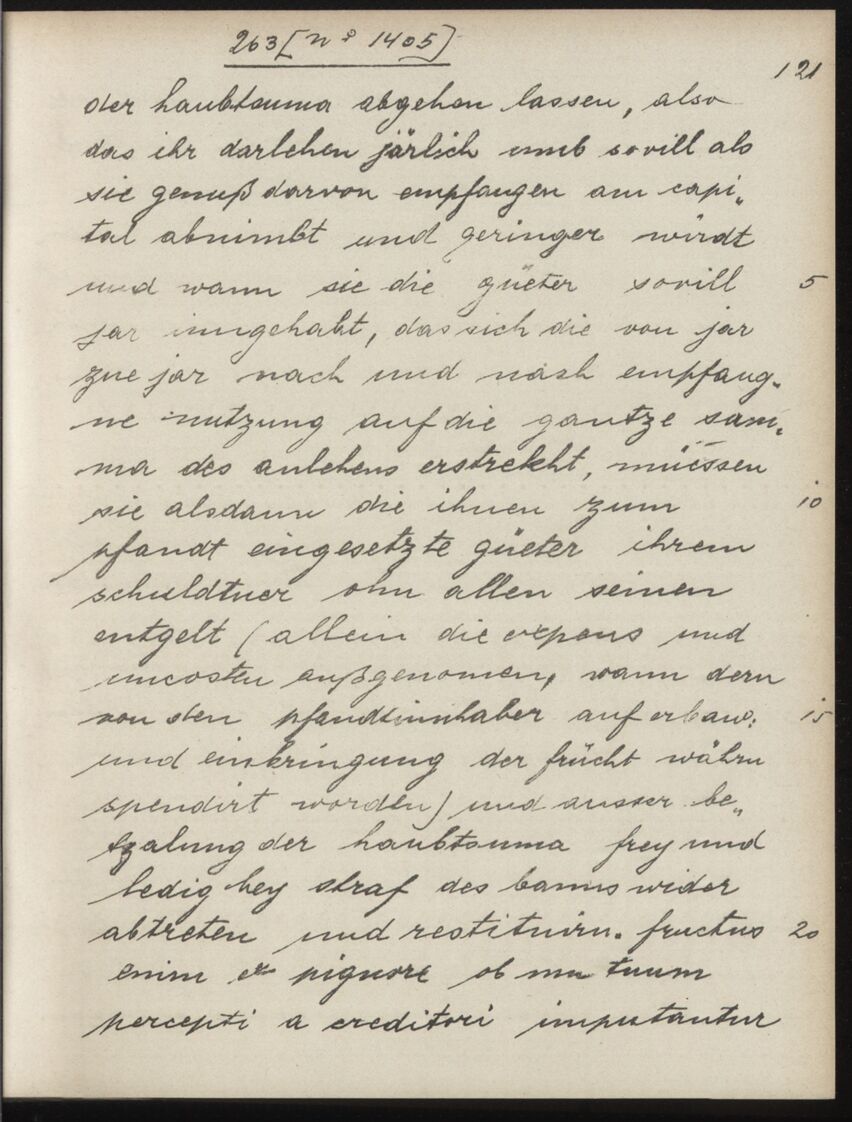 263 [nº 1405]
121
der haubtsuma abgehen lassen, also
das ihr darlehen järlich umb sovill als
sie genuß darvon empfangen am capi„
tal abnimbt und geringer wirdt
und wann sie die güeter sovill 5
jar inngehabt, das sich die von jar
zue jar nach und nach empfang„
ne nutzung auf die gantze sum„
ma des anlehens erstrekht, müessen
sie alsdann die ihnen zum 10
pfandt eingesetzte güeter ihrem
schuldtner ohn allen seinen
entgelt (allein die expens und
uncosten außgenomen, wann dern
von den pfandtinnhaber auf erbaw: 15
und einbringung der frücht währn
spendirt worden) und ausser be„
tzalung der haubtsuma frey und
ledig bey straf des banns wider
abtreten und restituirn. fructus 20
enim ex pignore ob mutuum
percepti a creditori imputantur